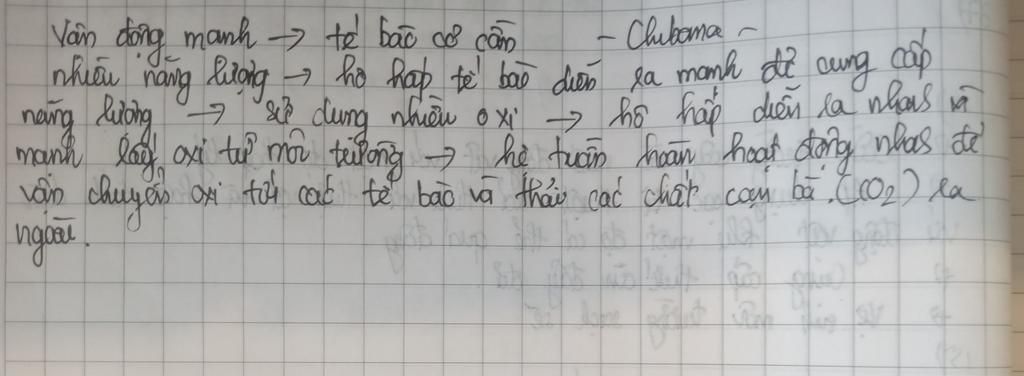 Vận động mạnh → tế bào cơ cần - Chubama -
nhiều năng lượng → hô hấp tế bào diễn ra mạnh để cung cấp
năng lượng → sử dụng nhiều oxi → hô hấp diễn ra nhanh và
mạnh lấy oxi từ môi trường → hệ tuần hoàn hoạt động nhanh để
vận chuyển oxi tới các tế bào và thải các chất cặn bã (CO2) ra
ngoài.